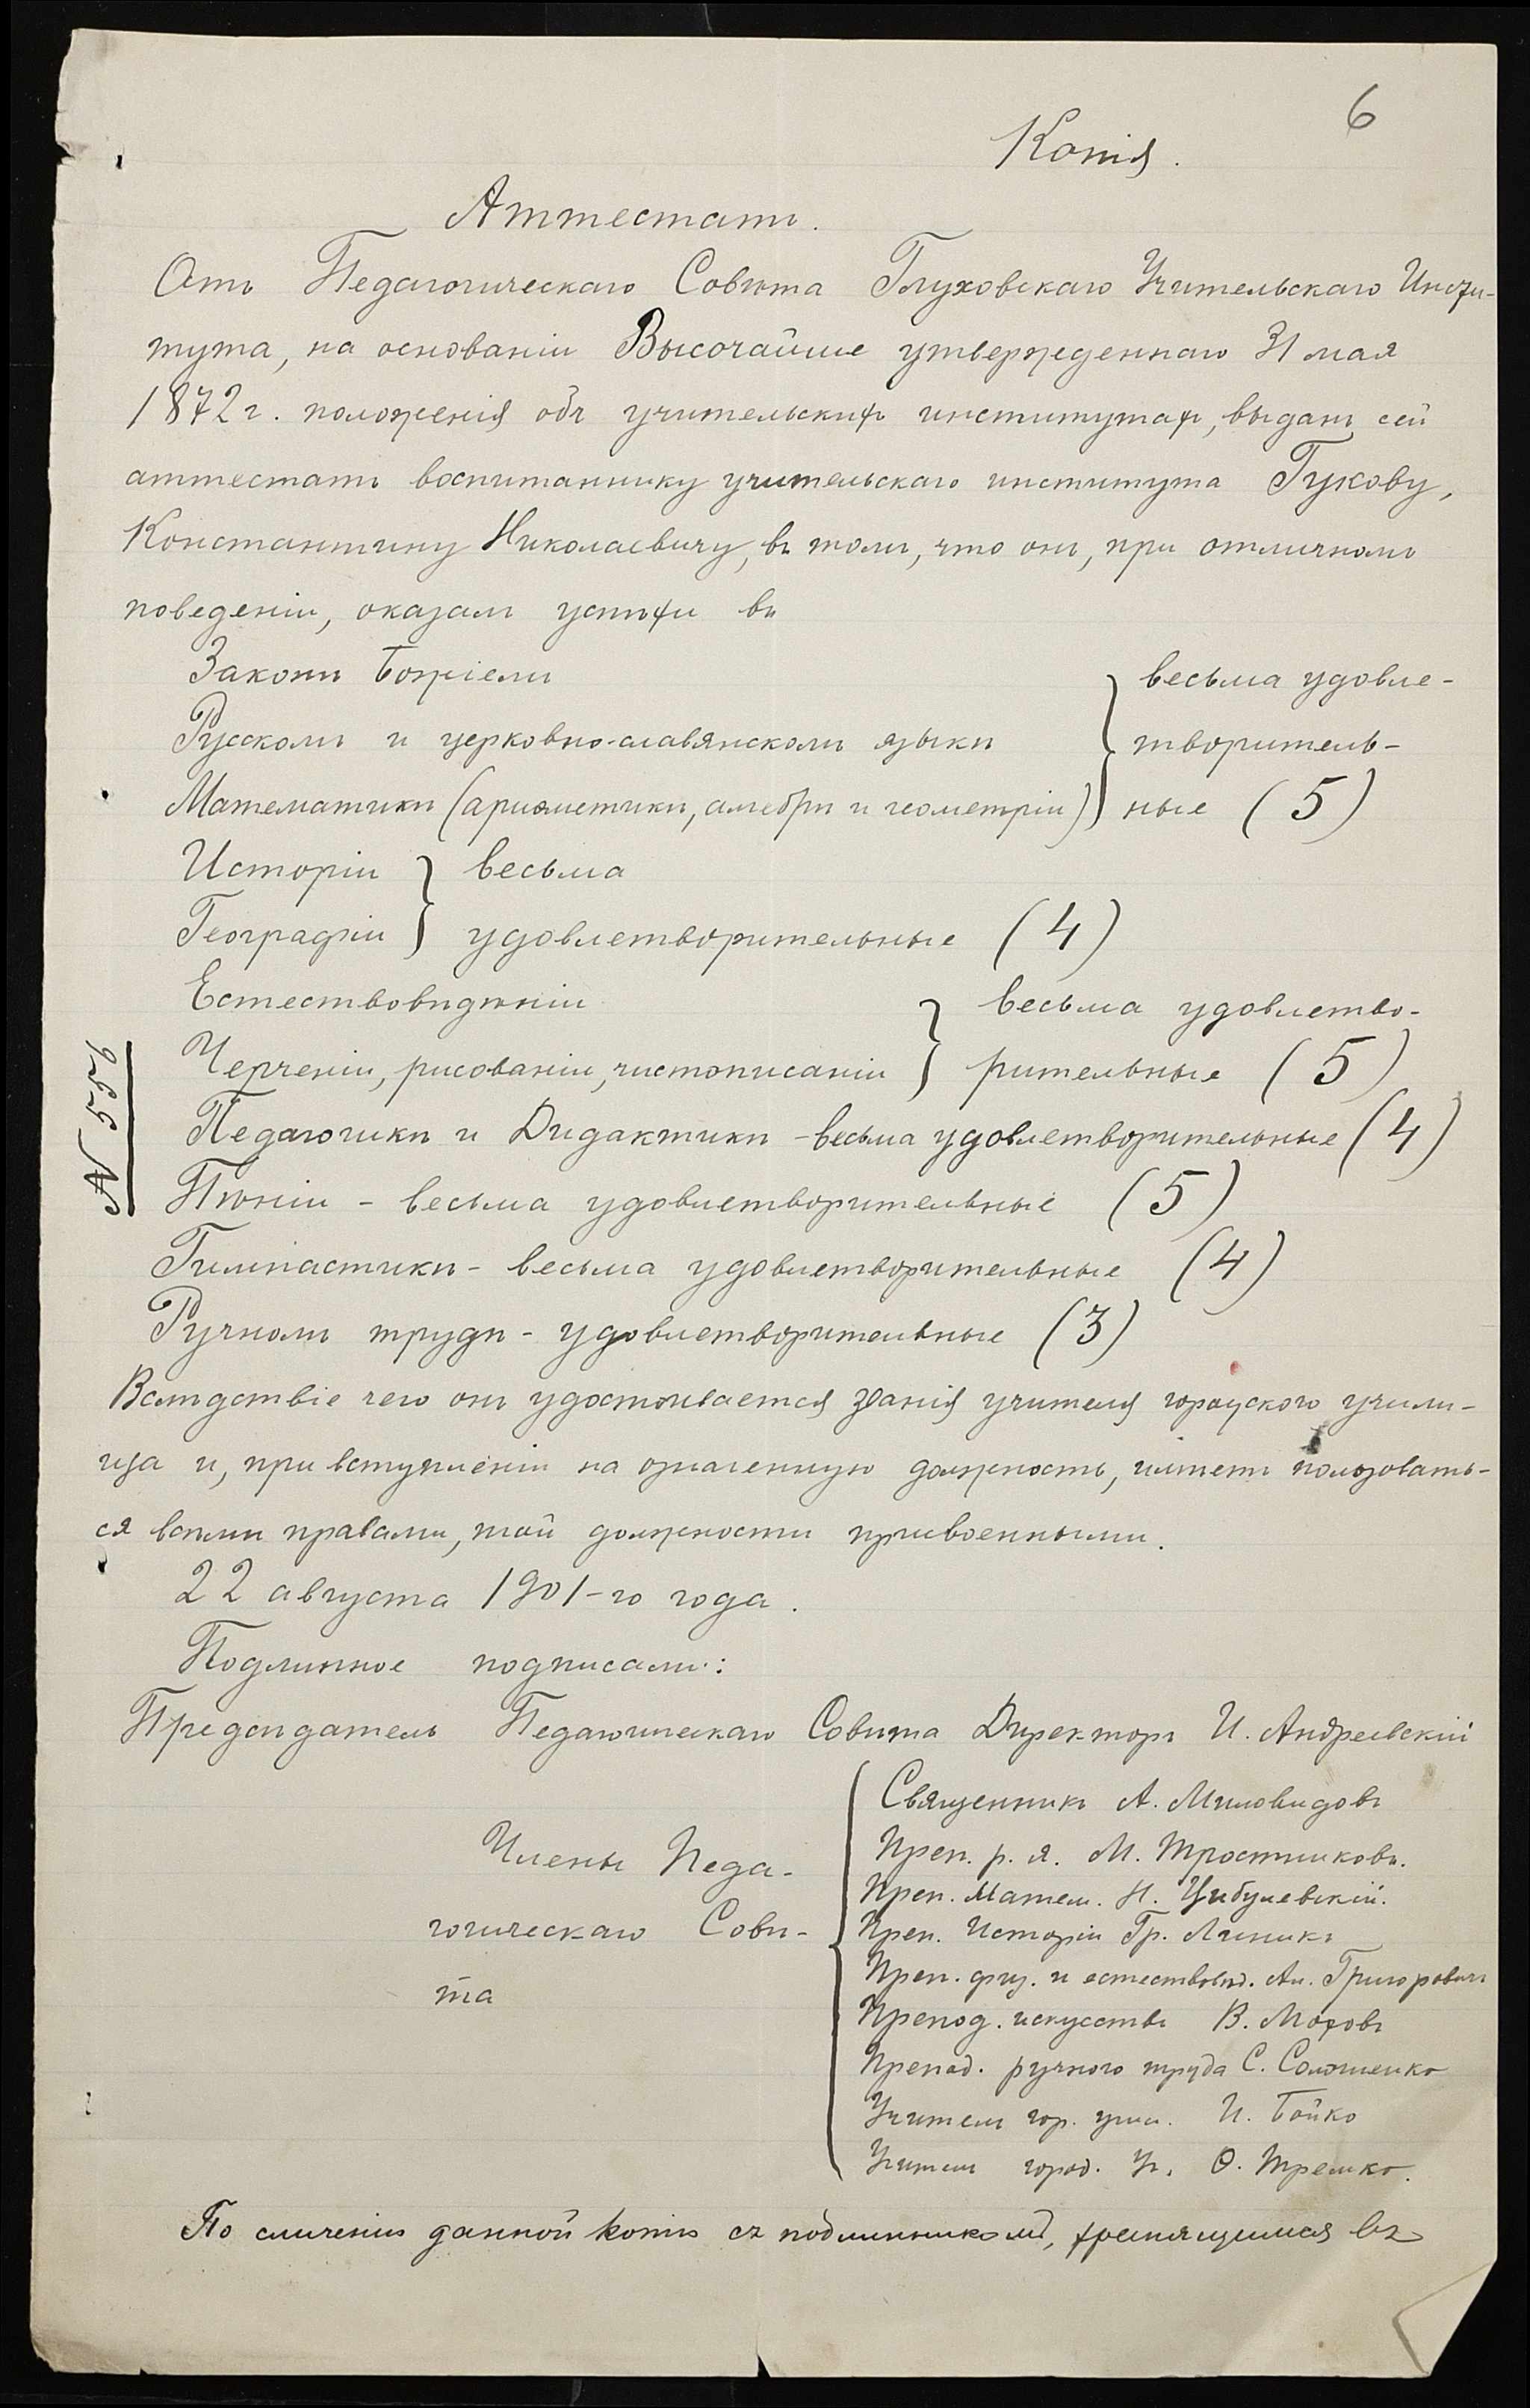 6
Копія.
Аттестатъ.
Отъ Педагогическаго Совѣта Глуховскаго Учительскаго Инсти-
тута, на основаніи Высочайше утвержденнаго 31 мая
1872 г. положенія объ учительскихъ институтахъ, выданъ сей
аттестатъ воспитаннику учительскаго института Гукову,
Константину Николаевичу, въ томъ, что онъ, при отличномъ
поведеніи, оказалъ успѣхи въ
Законѣ Божіемъ
Русскомъ и церковно-славянскомъ языкѣ
Математикѣ (ариѳметикѣ, алгебрѣ и геометріи)
весьма удовле-
творитель-
ные (5)
Исторіи
Географіи
весьма
удовлетворительные (4)
Естествовѣдѣніи
Черченіи, рисованіи, чистописаніи
весьма удовлетво-
рительные (5)
Педагогикѣ и Дидактикѣ - весьма удовлетворительные (4)
Пѣніи - весьма удовлетворительные (5)
Гимнастикѣ - весьма удовлетворительные (4)
Ручномъ трудѣ - удовлетворительные (3)
№ 559
Вслѣдствіе чего онъ удостоивается званія учителя городского учили-
ща и, при вступленіи на означенную должность, имѣетъ пользовать-
ся всѣми правами, той должности присвоенными.
22 августа 1901-го года.
Подлинное подписали:
Предсѣдатель Педагогическаго Совѣта Директоръ И. Андреевскій
Члены Педа-
гогическаго Совѣ-
та
Священникъ А. Миловидовъ
Преп. р. я. М. Тростниковъ.
Преп. Матем. Н. Цибулевскій.
Преп. Исторіи Гр. Линикъ
Преп. физ. и естествовѣд. Ан. Григоровичъ
Препод. искусствъ В. Моховъ
Препод. ручного труда С. Соложенко
Учитель гор. учил. И. Бойко
Учитель город. уч. Ѳ.
По сличенію данной копіи съ подлинникомъ, хранящимся въ